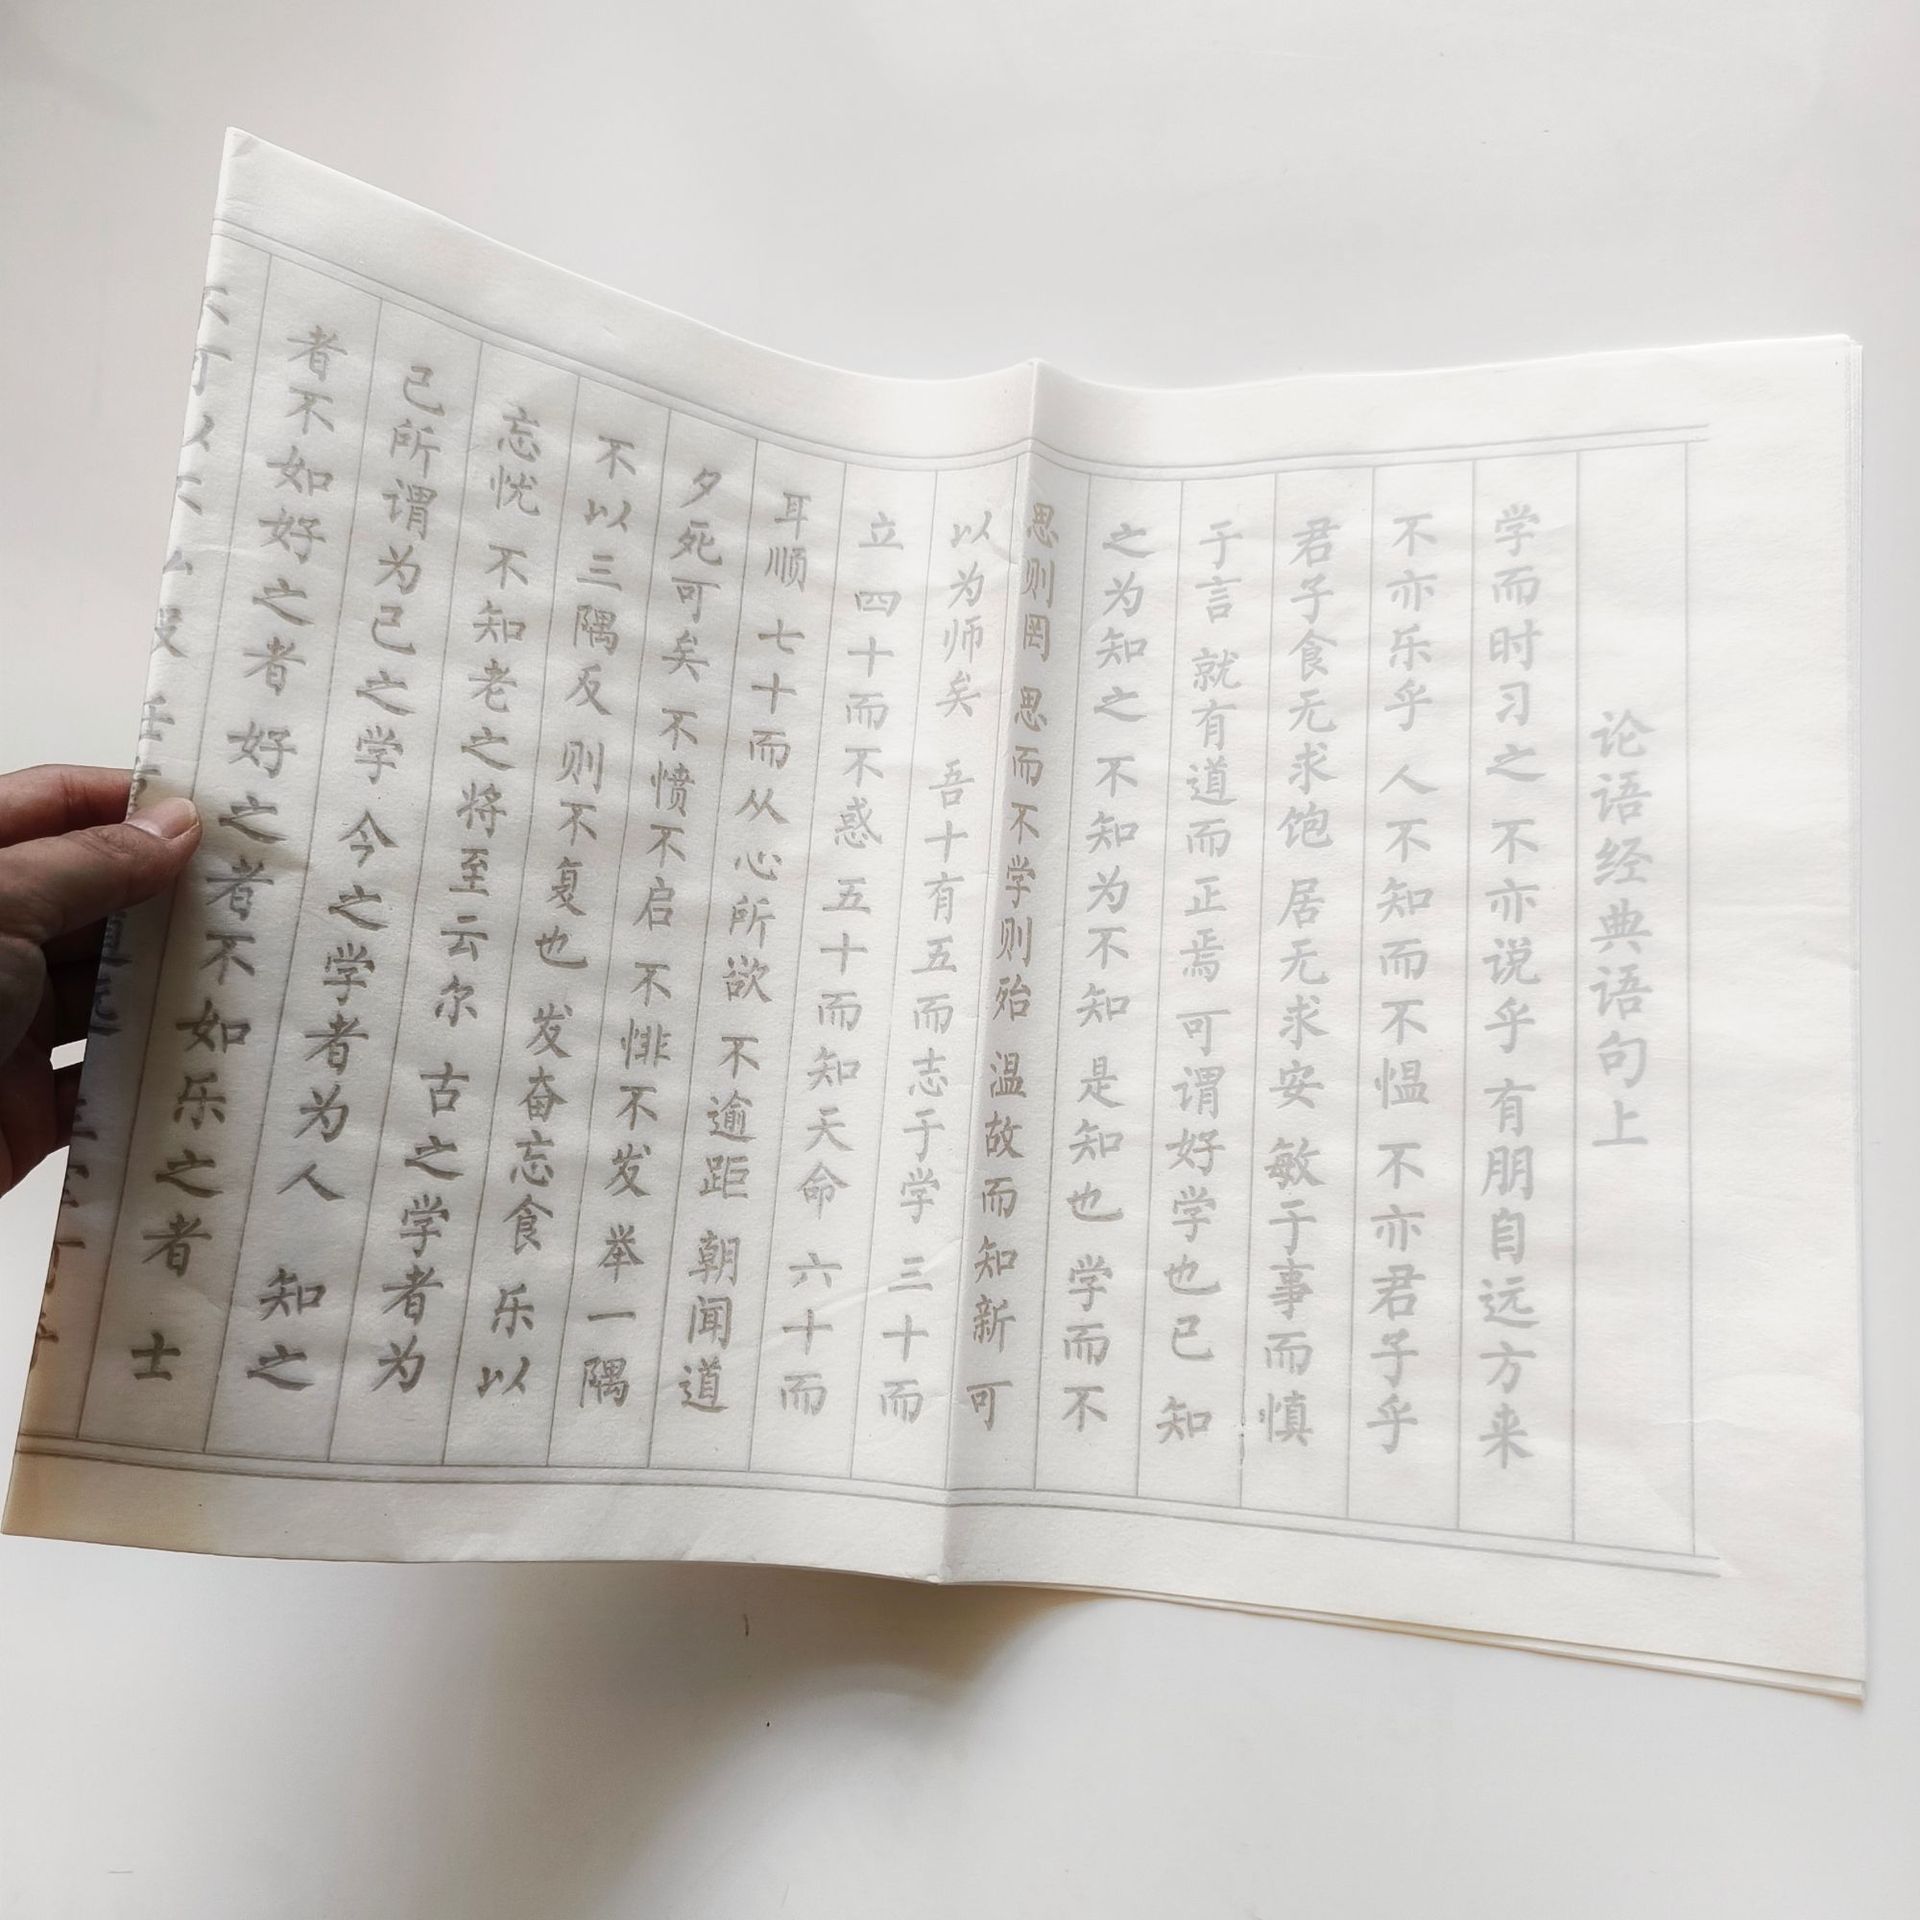 论语经典语句上
学而时习之 不亦说乎 有朋自远方来
不亦乐乎 人不知而不愠 不亦君子乎
君子食无求饱 居无求安 敏于事而慎
于言 就有道而正焉 可谓好学也已 知
之为知之 不知为不知 是知也 学而不
思则罔 思而不学则殆 温故而知新 可
以为师矣 吾十有五而志于学 三十而
立 四十而不惑 五十而知天命 六十而
耳顺 七十而从心所欲 不逾距 朝闻道
夕死可矣 不愤不启 不悱不发 举一隅
不以三隅反 则不复也 发奋忘食 乐以
忘忧 不知老之将至云尔 古之学者为
己 所谓为己之学 今之学者为人 知之
者不如好之者 好之者不如乐之者 士